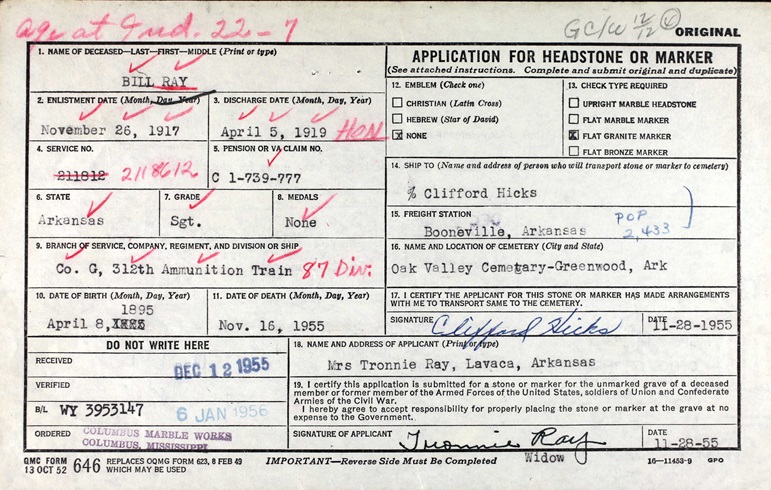 age at Ind. 22-7
GC/W 12/12
ORIGINAL
1. NAME OF DECEASED—LAST—FIRST—MIDDLE (Print or type)
BILL RAY
2. ENLISTMENT DATE (Month, Day, Year)
November 26, 1917
3. DISCHARGE DATE (Month, Day, Year)
April 5, 1919 HON
4. SERVICE NO.
211812 2118612
5. PENSION OR VA CLAIM NO.
C 1-739-777
6. STATE
Arkansas
7. GRADE
Sgt.
8. MEDALS
None
9. BRANCH OF SERVICE, COMPANY, REGIMENT, AND DIVISION OR SHIP
Co. G, 312th Ammunition Train 87 Div.
10. DATE OF BIRTH (Month, Day, Year)
1895
April 8,
11. DATE OF DEATH (Month, Day, Year)
Nov. 16, 1955
DO NOT WRITE HERE
RECEIVED
DEC 12 1955
VERIFIED
B/L WY 3953147
6 JAN 1956
ORDERED
COLUMBUS MARBLE WORKS
COLUMBUS, MISSISSIPPI
APPLICATION FOR HEADSTONE OR MARKER
(See attached instructions. Complete and submit original and duplicate)
12. EMBLEM (Check one)
CHRISTIAN (Latin Cross)
HEBREW (Star of David)
X NONE
13. CHECK TYPE REQUIRED
UPRIGHT MARBLE HEADSTONE
FLAT MARBLE MARKER
X FLAT GRANITE MARKER
FLAT BRONZE MARKER
14. SHIP TO (Name and address of person who will transport stone or marker to cemetery)
% Clifford Hicks
15. FREIGHT STATION
Booneville, Arkansas
POP
2,433
16. NAME AND LOCATION OF CEMETERY (City and State)
Oak Valley Cemetary-Greenwood, Ark
17. I CERTIFY THE APPLICANT FOR THIS STONE OR MARKER HAS MADE ARRANGEMENTS
WITH ME TO TRANSPORT SAME TO THE CEMETERY.
SIGNATURE Clifford Hicks
DATE
11-28-1955
18. NAME AND ADDRESS OF APPLICANT (Print or type)
Mrs Tronnie Ray, Lavaca, Arkansas
19. I certify this application is submitted for a stone or marker for the unmarked grave of a deceased
member or former member of the Armed Forces of the United States, soldiers of Union and Confederate
Armies of the Civil War.
I hereby agree to accept responsibility for properly placing the stone or marker at the grave at no
expense to the Government.
SIGNATURE OF APPLICANT
Tronnie Ray
Widow
DATE
11-28-55
QMC FORM
13 OCT 52 646 REPLACES OQMG FORM 623, 8 FEB 49
WHICH MAY BE USED
IMPORTANT—Reverse Side Must Be Completed
16—11453-9 GPO